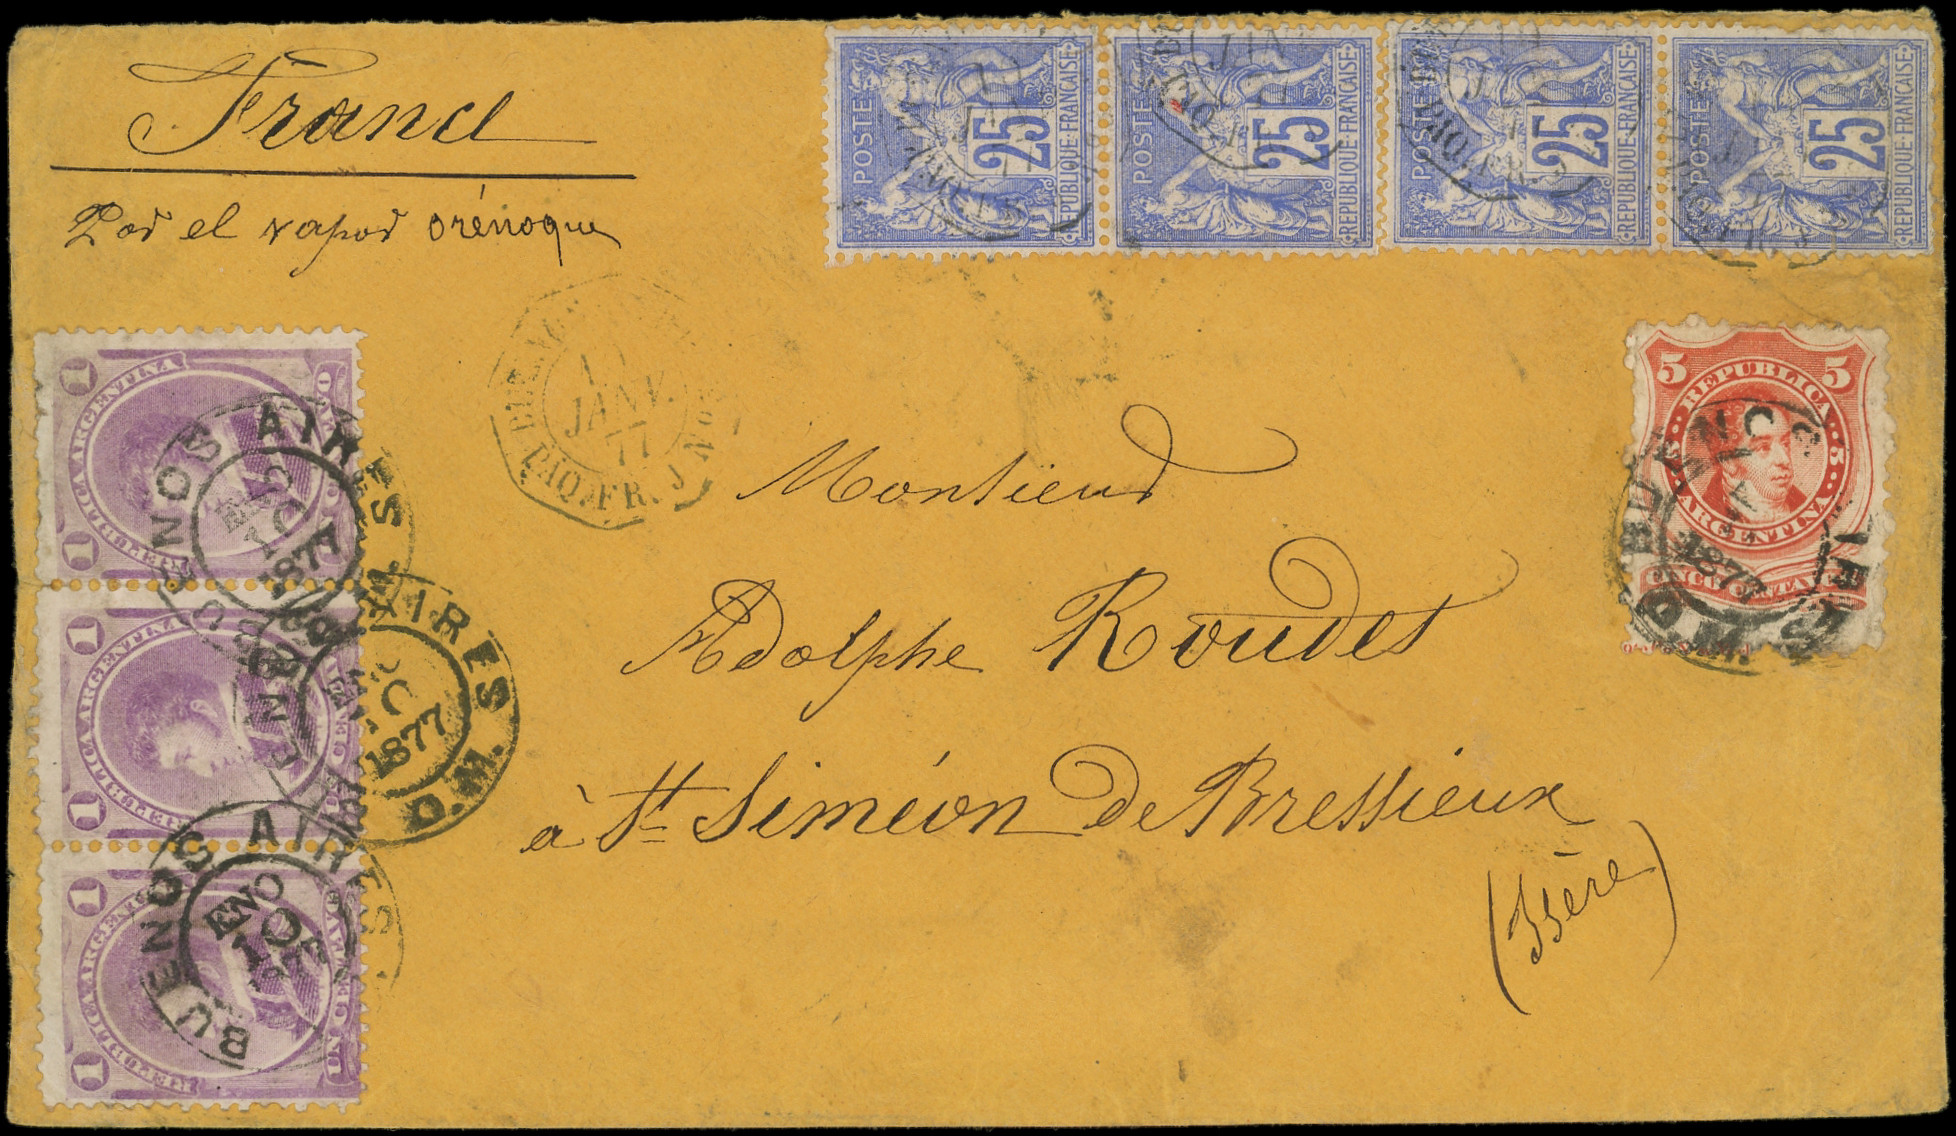 France
Por el vapor Orénoque
POSTE 25 REPUBLIQUE-FRANÇAISE
POSTE 25 REPUBLIQUE-FRANÇAISE
POSTE 25 REPUBLIQUE-FRANÇAISE
POSTE 25 REPUBLIQUE-FRANÇAISE
JANV. 77
PAQ. FR. J No
5 5
REPUBLICA
ARGENTINA
Monsieur
Adolphe Roudet
à St Siméon de Bressieux
(Isère)
1 REPUBLICA ARGENTINA 1
BUENOS AIRES
ENO 10 1877
1 REPUBLICA ARGENTINA 1
AIRES
1877
1 REPUBLICA ARGENTINA 1
UN CENTAVO
BUENOS AIRES
ENO 10